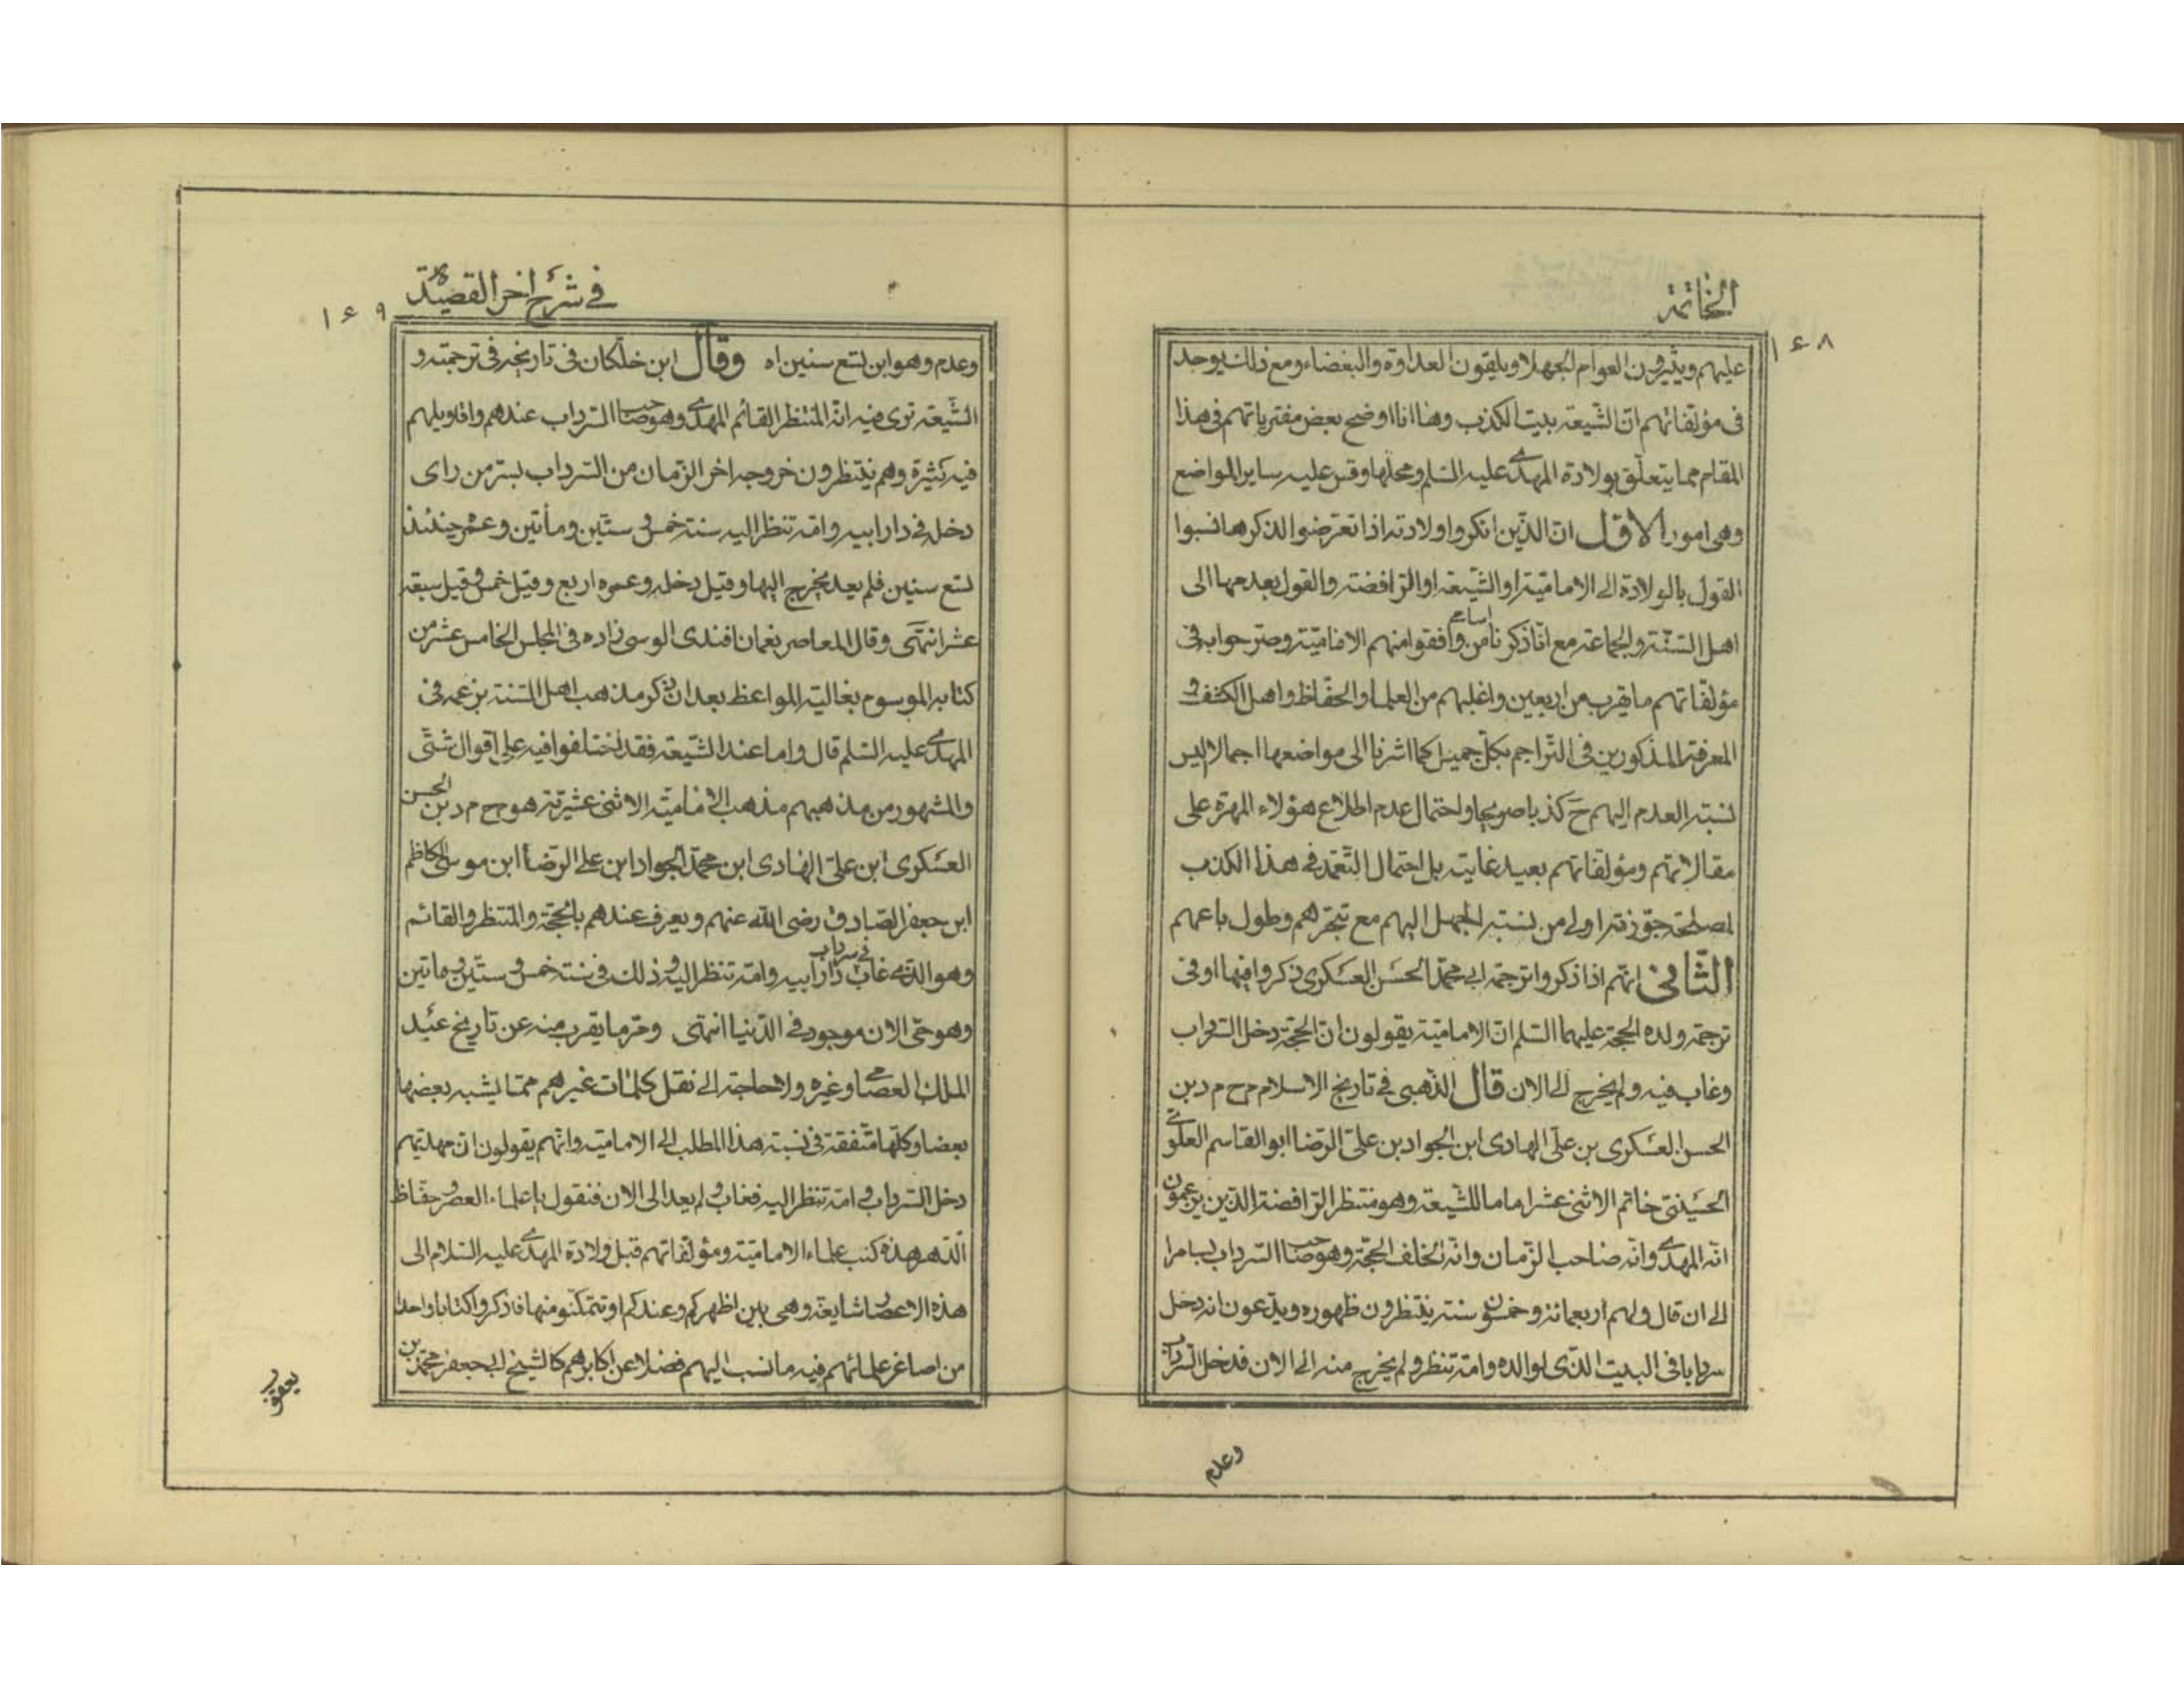 الخاتمة
۱۶۸
عليهم ويثيرون العوام الجهلا ويلقون العداوة والبغضاء ومع ذلك يوجد
فى مؤلفاتهم انّ الشّيعة بيت الكذب وها انا اوضح بعض مفترياتهم فى هذا
المقام مما يتعلّق بولادة المهدى عليه السّلم ومحلها وقس عليه ساير المواضع
وهى امور الاوّل انّ الذّين انكروا ولادته اذا تعرّضوا لذكرها نسبوا
القول بالولادة الى الاماميّة او الشّيعة او الرّافضة والقول بعدمها الى
اهل السّنّة والجماعة مع انّا ذكرنا من وافقوا منهم الاماميّة وصرّحوا به فى
مؤلّفاتهم ما يقرب من اربعين واغلبهم من العلماء والحفّاظ واهل الكشف و
المعرفة المذكورين فى التّراجم بكلّ جميل كما اشرنا الى مواضعها اجمالا اليس
نسبة العدم اليهم حَ كذبا صريحا واحتمال عدم اطلاع هؤلاء المهرة على
مقالاتهم ومؤلفاتهم بعيد غايته بل احتمال التّعمّد فى هذا الكذب
لمصلحة جوّزته اولى من نسبة الجهل اليهم مع تبحّرهم وطول باعهم
الثّانى انّهم اذا ذكروا ترجمة ابى محمّد الحسَن العسَكرى ذكروا فيها او فى
ترجمة ولده الحجة عليهما السّلم انّ الاماميّة يقولون انّ الحجّة دخل السّرداب
وغاب فيه ولم يخرج الى الان قال الذّهبى فى تاريخ الاسلام م ح م د بن
الحسن العسَكرى بن علّى الهادى ابن الجواد بن علىّ الرّضا ابو القاسم العلوى
الحسَينىّ خاتم الاثنى عشر اماما للشّيعة وهو منتظر الرّافضة الذّين يزعمون
انّه المهدى وانّه صاحب الزّمان وانّه الخلف الحجّة وهو صاحب السّرداب بسامرا
الى ان قال ولهم اربعمائة وخمسون سنة ينتظرون ظهوره ويدّعون انه دخل
سردابا فى البيت الذّى لوالده وامّه تنظر ولم يخرج منه الى الان فدخل السّرداب
وعدم
فى شرح اخر القصيدة
۱۶۹
وعدم وهو ابن تسع سنين اه وقال ابن خلّكان فى تاريخه فى ترجمته و
الشّيعة ترى فيه انّه المنتظر القائم المهدى وهو صاحب السّرداب عندهم واقاويلهم
فيه كثيرة وهم ينتظرون خروجه اخر الزّمان من السّرداب بسرّ من راى
دخل فى دار ابيه وامّه تنظر اليه سنة خمس و ستّين ومأتين وعمره حينئذ
تسع سنين فلم يعد يخرج اليها وقيل دخل وعمره اربع وقيل خمس وقيل سبعة
عشر انتهى وقال المعاصر نعمان افندى الوسى زاده فى المجلس الخامس عشر من
كتابه الموسوم بغالية المواعظ بعد ان ذكر مذهب اهل السّنة بزعمه فى
المهدى عليه السّلم قال واما عند الشّيعة فقد اختلفوا فيه على اقوال شتّى
والمشهور من مذهبهم مذهب الاماميّة الاثنى عشيّرية هو م ح م د بن الحسن
العسَكرى ابن علىّ الهادى ابن محمّد الجواد ابن على الرّضا ابن موسى الكاظم
ابن جعفر الصّادق رضى اللّه عنهم ويعرف عندهم بالحجّة والمنتظر والقائم
وهو الذّى غاب فى سرداب دار ابيه وامّه تنظر اليه وذلك فى سنة خمس و ستّين و ماتين
وهو حىّ الان موجود فى الدّنيا انتهى ومرّ ما يقرب منه عن تاريخ عبَد
الملك العصامى وغيره ولا حاجة الى نقل كلمات غيرهم ممّا يشبه بعضها
بعضا وكلّها متّفقة فى نسبة هذا المطلب الى الاماميّة وانّهم يقولون انّ مهديّهم
دخل السّرداب و امّه تنظر اليه فغاب ولم يعد الى الان فنقول يا علماء العصر وحفّاظ
الدّهر هذه كتب علماء الاماميّة ومؤلّفاتهم قبل ولادة المهدى عليه السّلام الى
هذه الاعصار شايعة وهى بين اظهركم وعندكم او تتمكّنو منها فاذكروا كتابا واحدا
من اصاغر علمائهم فيه ما نسب اليهم فضلا عن اكابرهم كالشيخ ابى جعفر محمّد بن
يعقوب